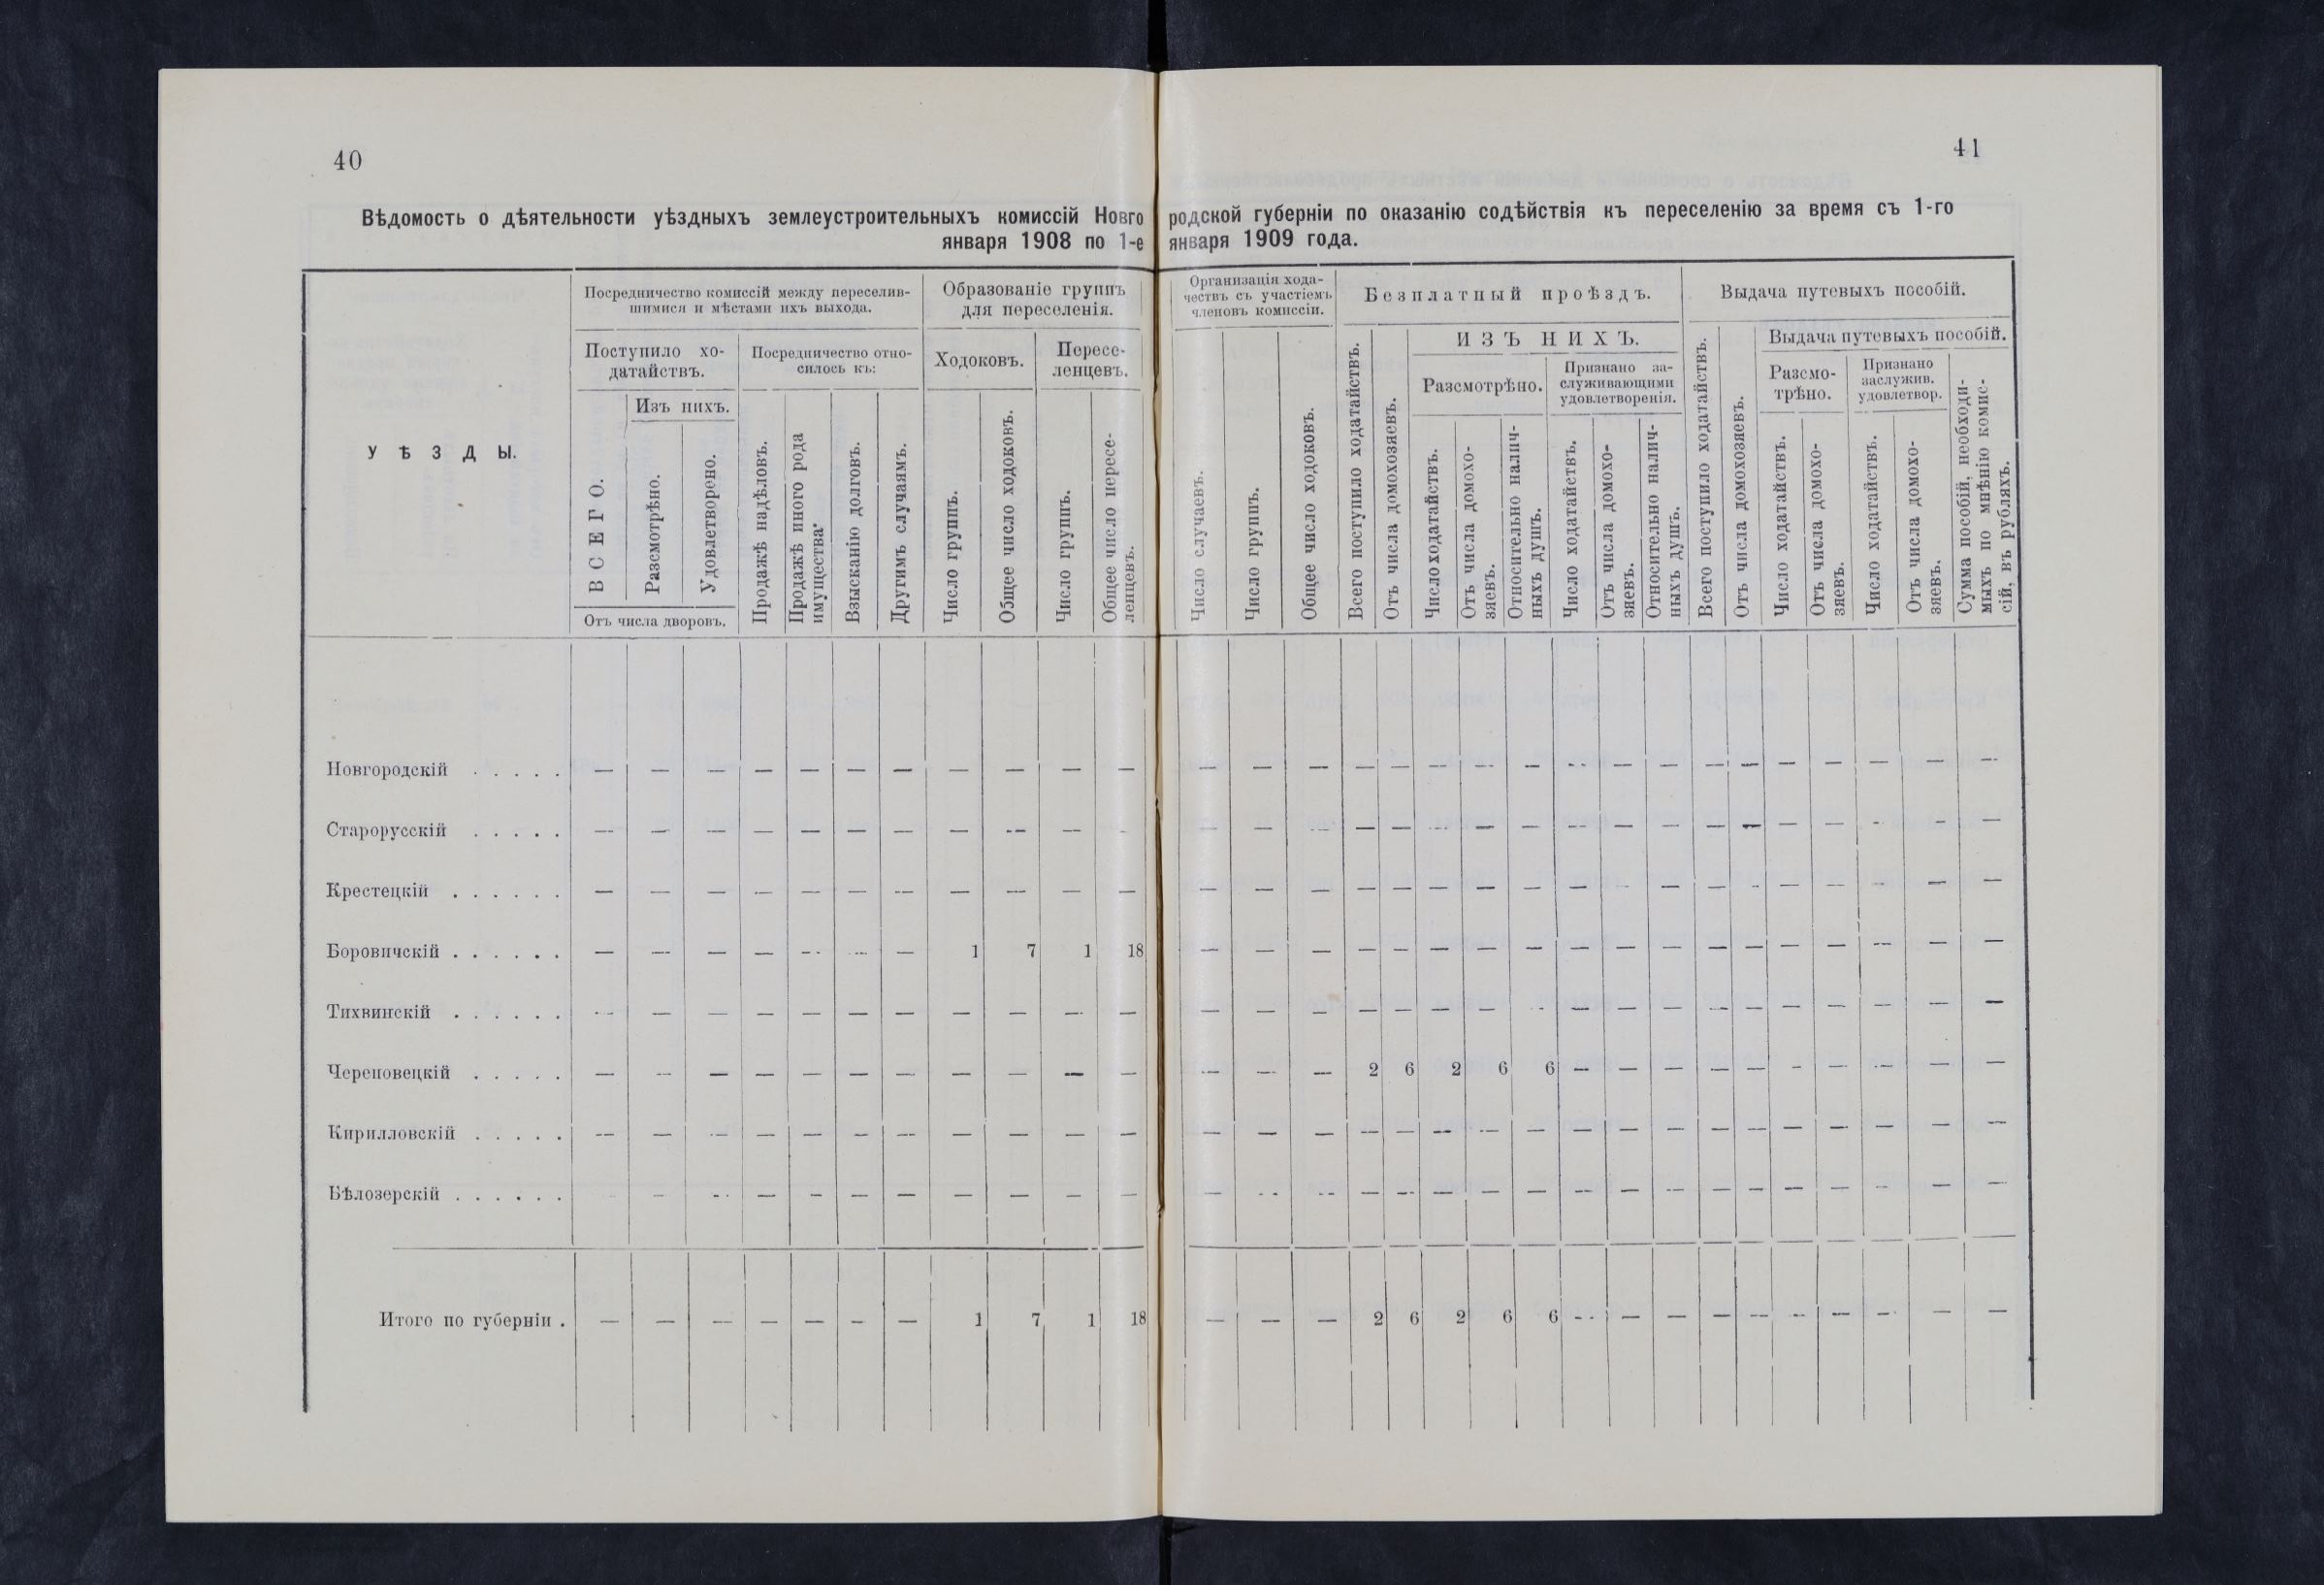 40
41
Вѣдомость о дѣятельности уѣздныхъ землеустроительныхъ комиссій Новго родской губерніи по оказанію содѣйствія къ переселенію за время съ 1-го
января 1908 по 1-е января 1909 года.
УѢЗДЫ.
Посредничество комиссій между переселив-
шимися и мѣстами ихъ выхода.
Поступило хо-
датайствъ.
ВСЕГО.
Изъ нихъ.
Разсмотрѣно.
Удовлетворено.
Отъ числа дворовъ.
Посредничество отно-
силось къ:
Продажѣ надѣловъ.
Продажѣ иного рода
имущества.
Взысканію долговъ.
Другимъ случаямъ.
Образованіе группъ
для переселенія.
Ходоковъ.
Число группъ.
Общее число ходоковъ.
Пересе-
ленцевъ.
Число группъ.
Общее число пересе-
ленцевъ.
Организація хода-
чествъ съ участіемъ
членовъ комиссіи.
Число случаевъ.
Число группъ.
Общее число ходоковъ.
Безплатный проѣздъ.
Всего поступило ходатайствъ.
Отъ числа домохозяевъ.
ИЗЪ НИХЪ.
Разсмотрѣно.
Число ходатайствъ.
Отъ числа домохо-
зяевъ.
Относительно налич-
ныхъ душъ.
Признано за-
служивающими
удовлетворенія.
Число ходатайствъ.
Отъ числа домохо-
зяевъ.
Относительно налич-
ныхъ душъ.
Выдача путевыхъ пособій.
Всего поступило ходатайствъ.
Отъ числа домохозяевъ.
Выдача путевыхъ пособій.
Разсмо-
трѣно.
Число ходатайствъ.
Отъ числа домохо-
зяевъ.
Признано
заслужив.
удовлетвор.
Число ходатайствъ.
Отъ числа домохо-
зяевъ.
Сумма пособій, необходи-
мыхъ по мнѣнію комис-
сій, въ рубляхъ.
Новгородскій . . . . . — — — — — — — — — — — — — — — — — — — — — — — — — — — — —
Старорусскій . . . . . — — — — — — — — — — — — — — — — — — — — — — — — — — — — —
Крестецкій . . . . . . — — — — — — — — — — — — — — — — — — — — — — — — — — — — —
Боровичскій . . . . . . — — — — — — — 1 7 1 18 — — — — — — — — — — — — — — — — — —
Тихвинскій . . . . . . — — — — — — — — — — — — — — — — — — — — — — — — — — — — —
Череповецкій . . . . . — — — — — — — — — — — — — — 2 6 2 6 6 — — — — — — — — — —
Кирилловскій . . . . . — — — — — — — — — — — — — — — — — — — — — — — — — — — — —
Бѣлозерскій . . . . . . — — — — — — — — — — — — — — — — — — — — — — — — — — — — —
Итого по губерніи . — — — — — — — 1 7 1 18 — — — 2 6 2 6 6 — — — — — — — — — —